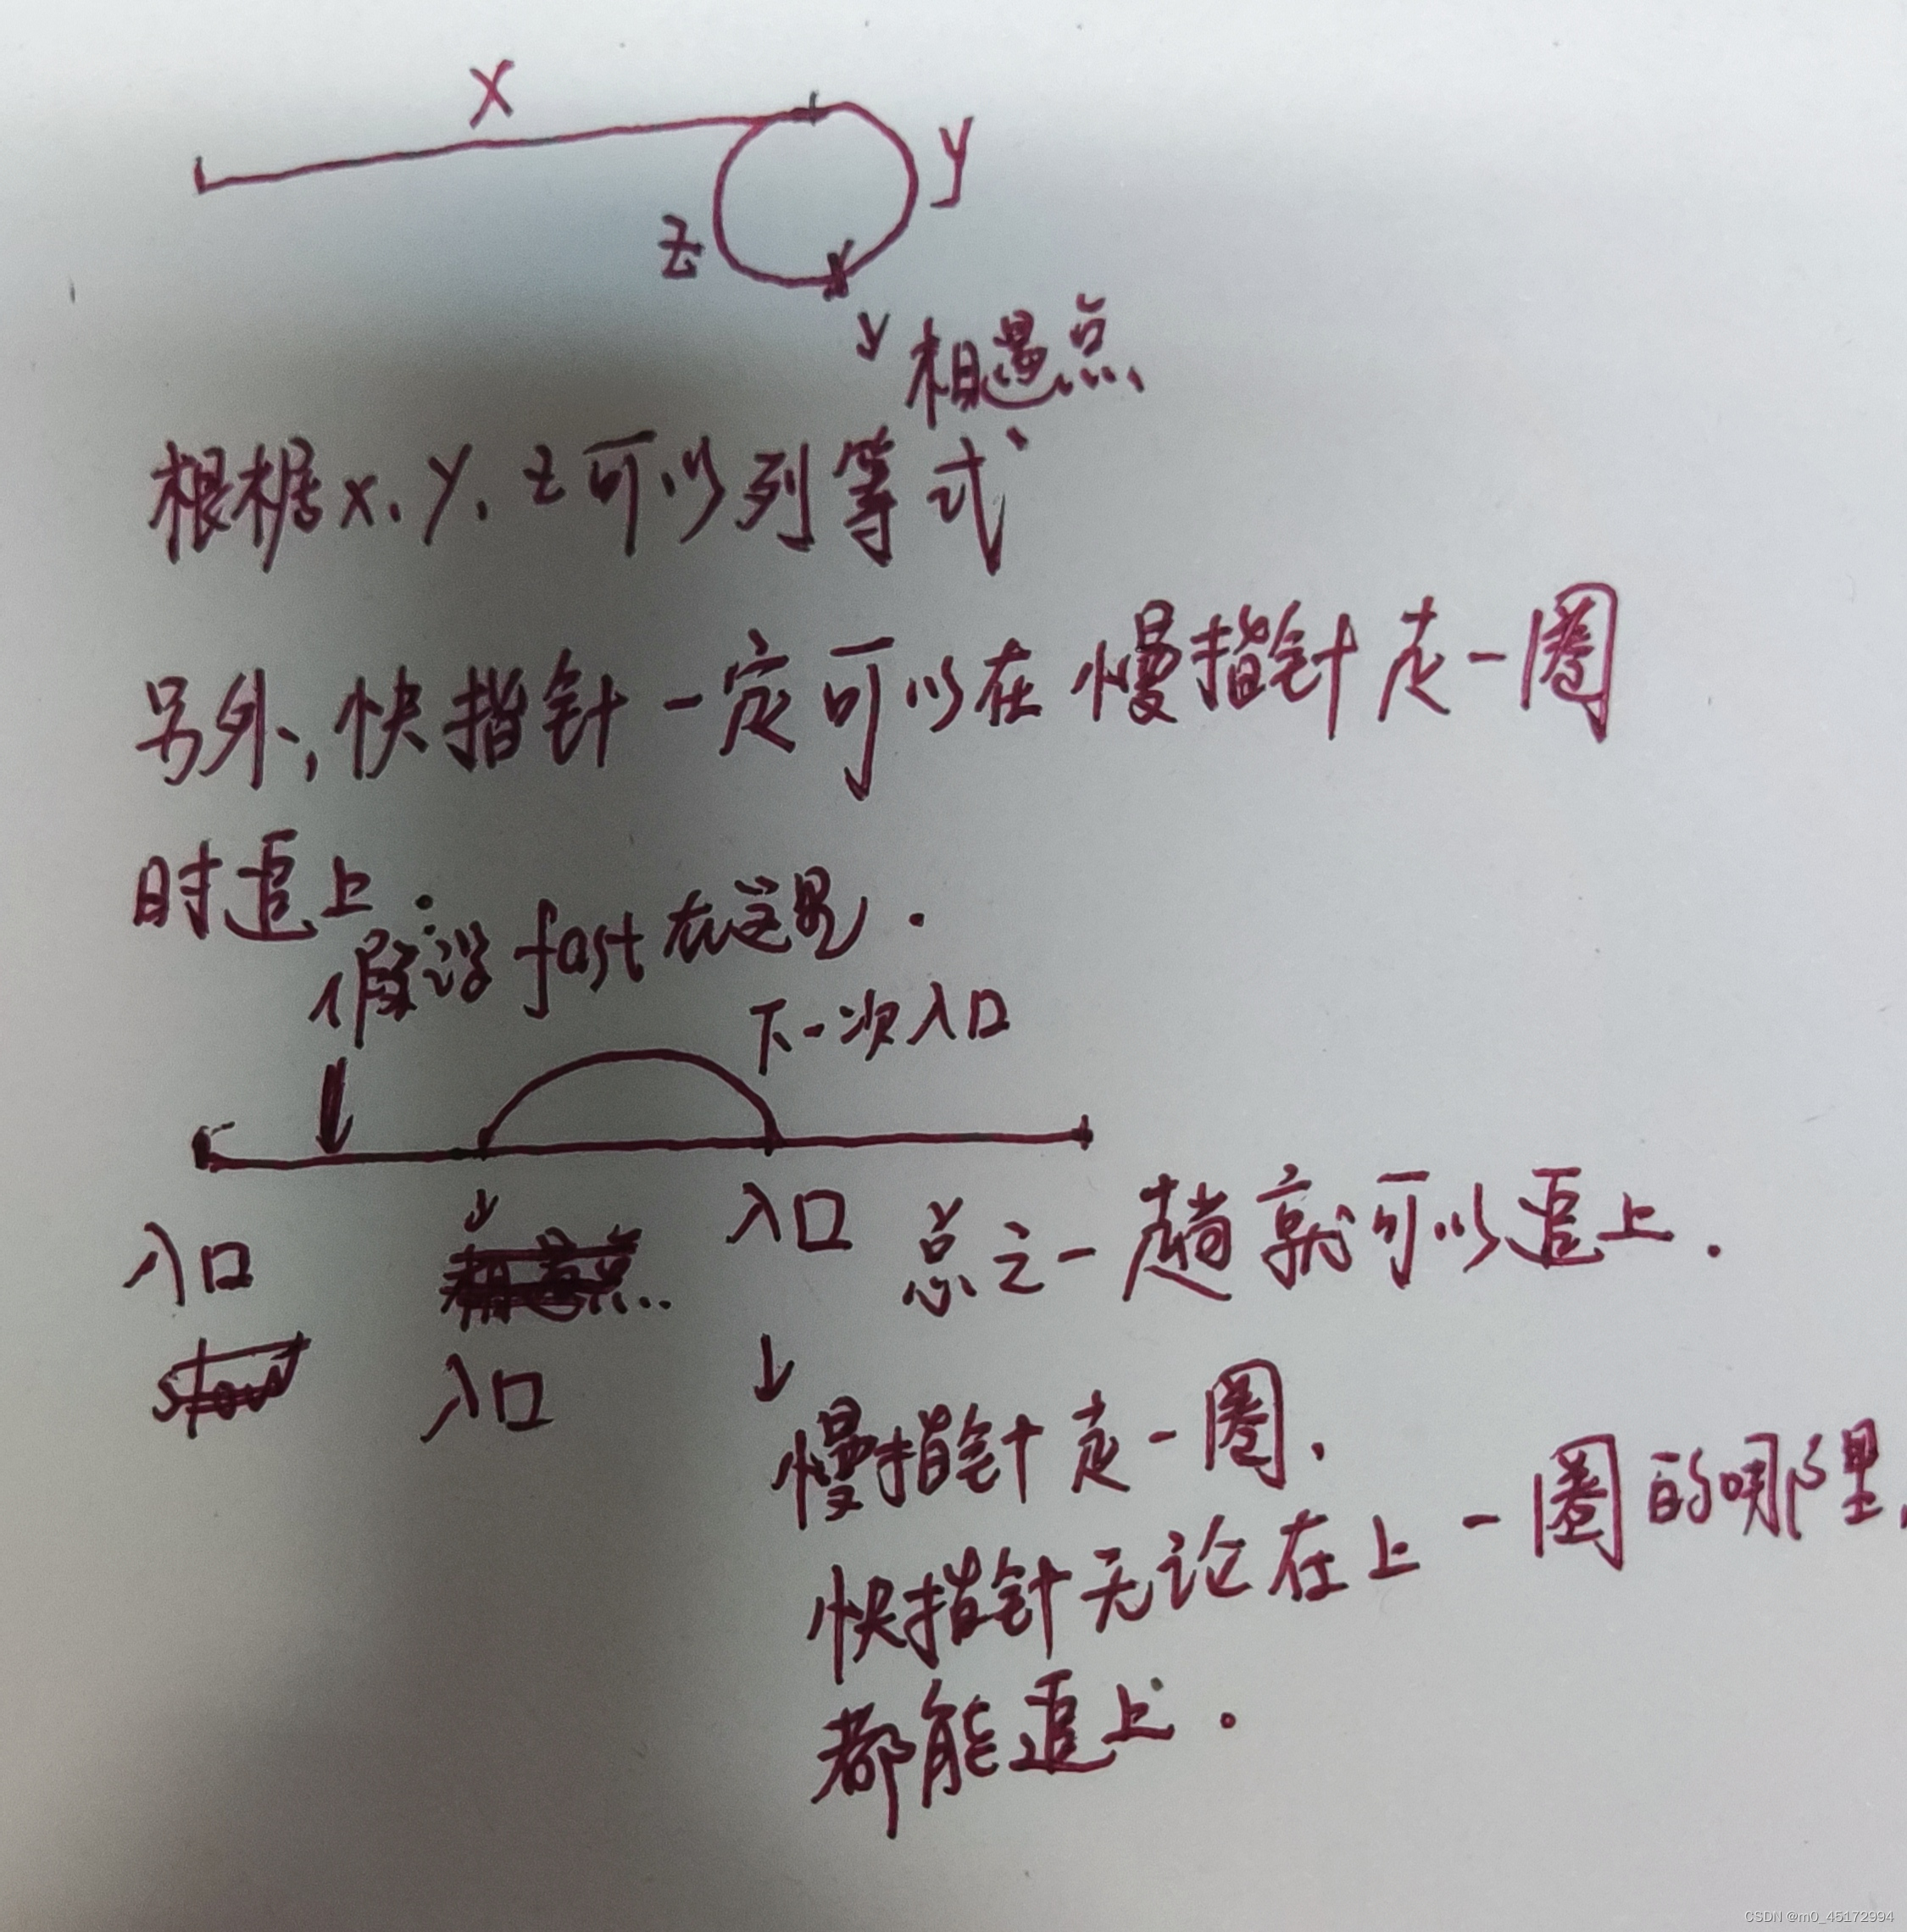 x
y
z
相遇点
根据x、y、z可以列等式
另外,快指针一定可以在慢指针走一圈
时追上.
假设fast在这里.
下一次入口
入口
入口
总之一趟就可以追上.
入口
慢指针走一圈.
快指针无论在上一圈的哪里,
都能追上.
CSDN @m0_45172994